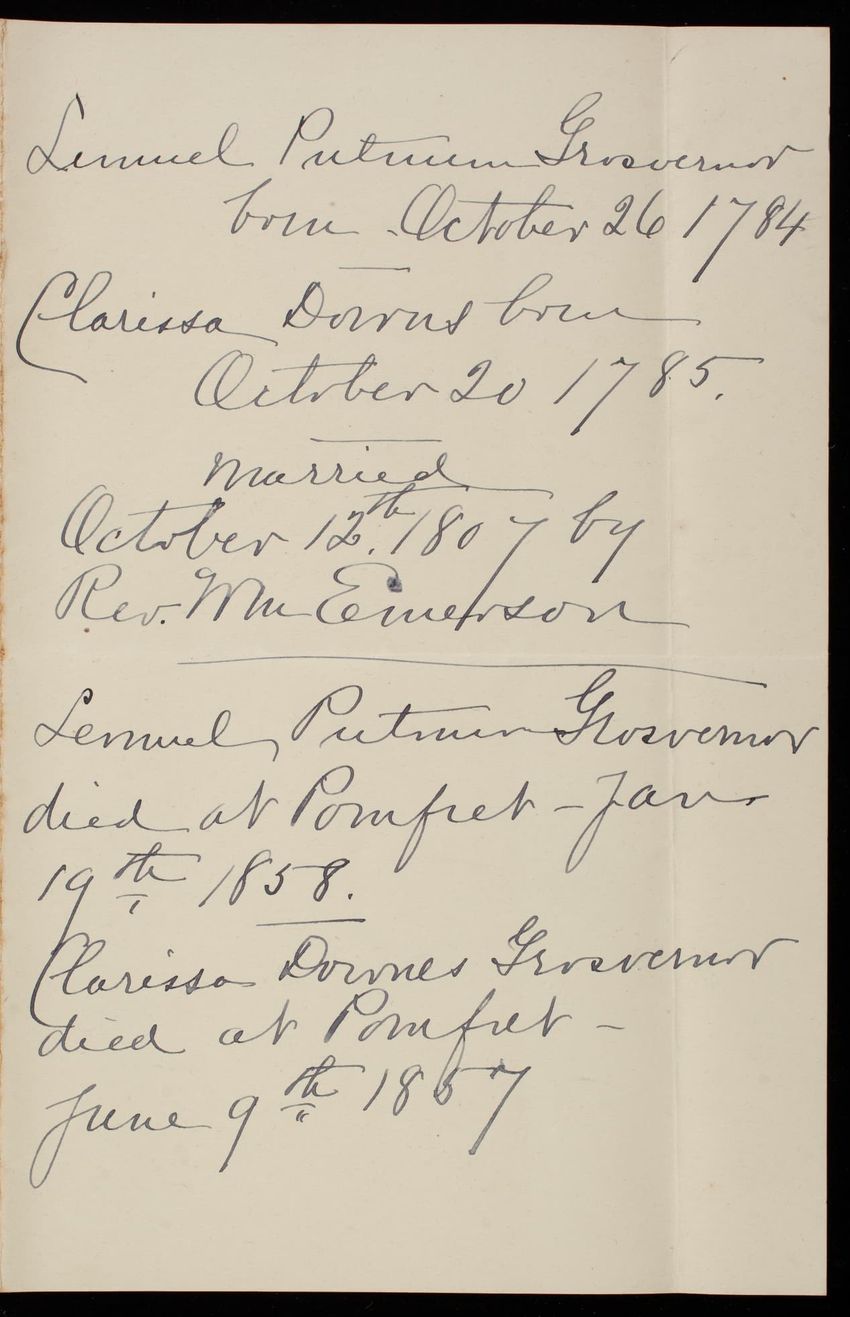 Lemuel Putnum Grosvernor
born October 26 1784
Clarissa Downs born
October 20 1785.
Married
October 12th. 1807 by
Rev. Wm Emerson
Lemuel Putnum Grosvernor
died at Pomfret - Jan
19th 1858.
Clarissa Downes Grosvernor
died at Pomfret -
June 9th 1857